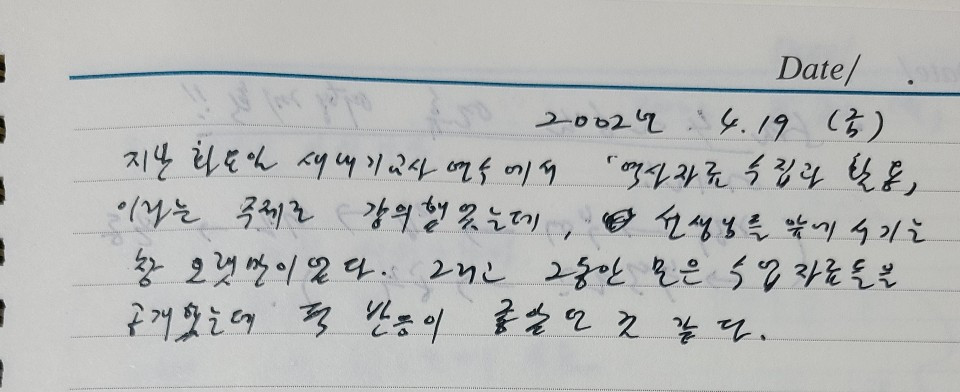 Date/ .
2002년 . 4. 19 (금)
지난 화요일 새내기교사 연수에서 「역사자료 수집과 활용」
이라는 주제로 강의했었는데, 선생님들 앞에 서기는
참 오랫만이었다. 그리고 그동안 모은 수업자료들을
공개했는데 퍽 반응이 좋았던 것 같다.